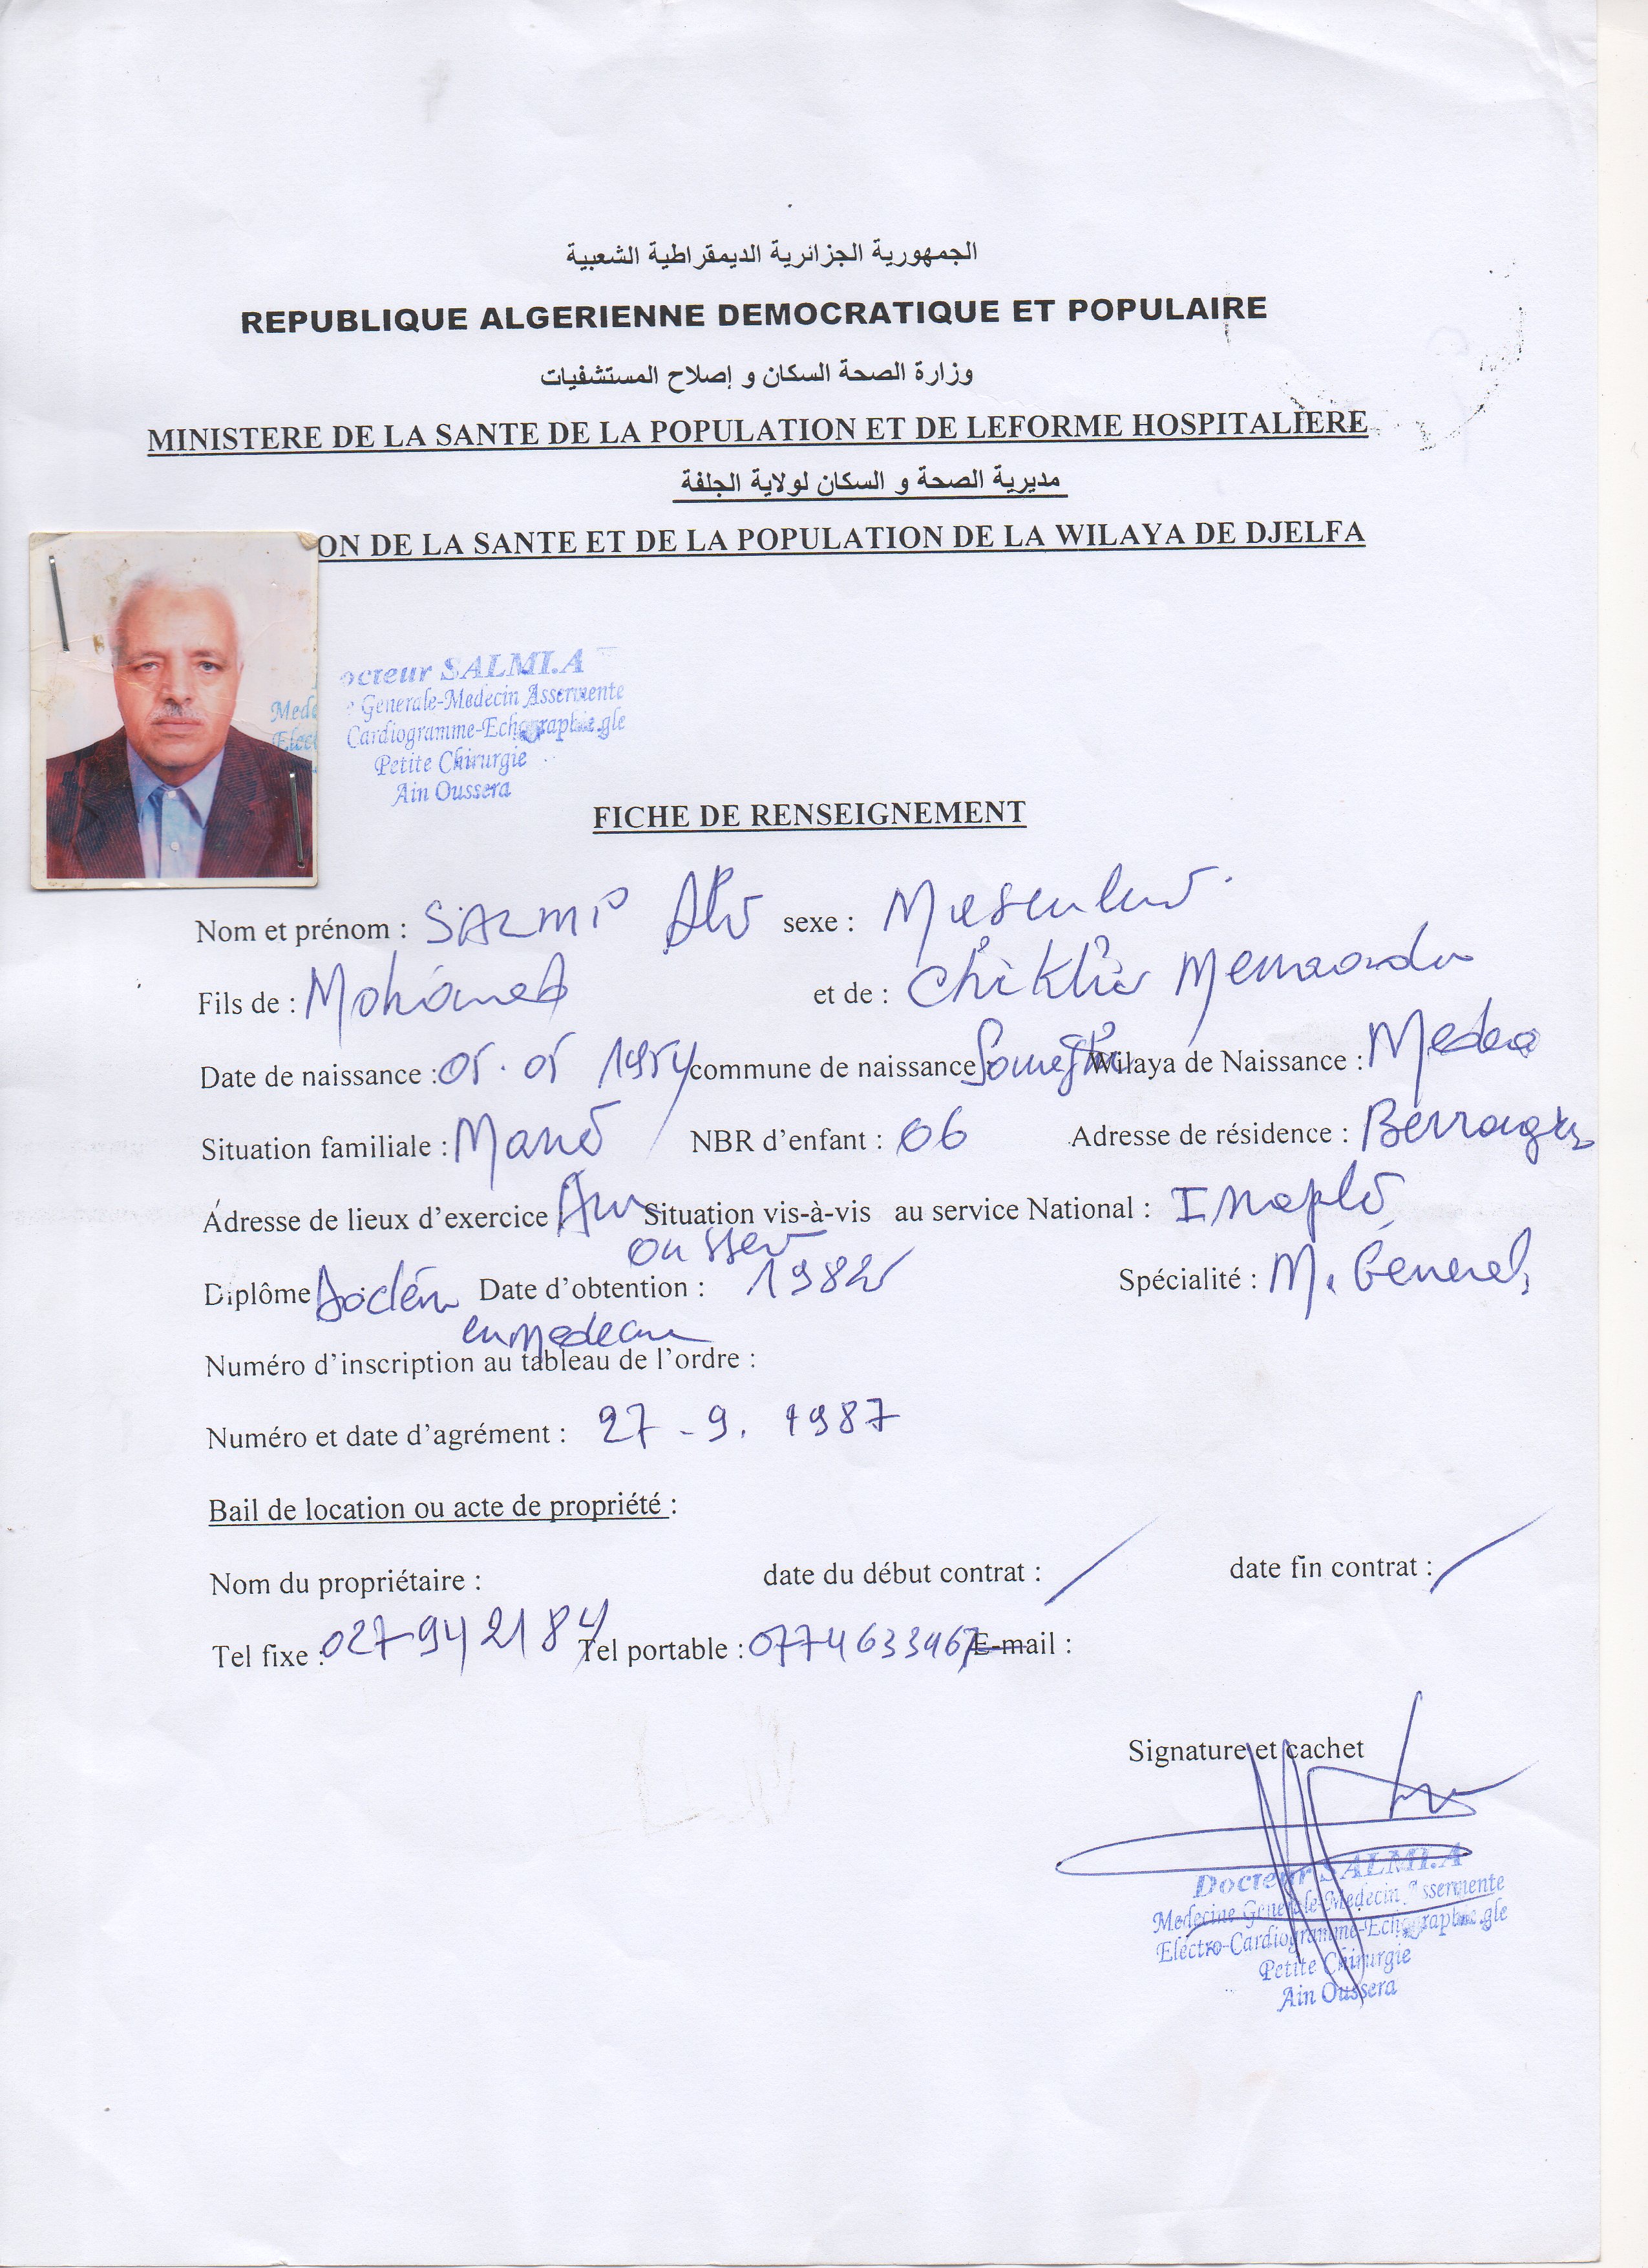 الجمهورية الجزائرية الديمقراطية الشعبية
REPUBLIQUE ALGERIENNE DEMOCRATIQUE ET POPULAIRE
وزارة الصحة السكان و إصلاح المستشفيات
MINISTERE DE LA SANTE DE LA POPULATION ET DE LEFORME HOSPITALIERE
مديرية الصحة و السكان لولاية الجلفة
ON DE LA SANTE ET DE LA POPULATION DE LA WILAYA DE DJELFA
octeur SALMI.A
Mede e Generale-Medecin Assermente
Elect Cardiogramme-Echographie.gle
Petite Chirurgie
Ain Oussera
FICHE DE RENSEIGNEMENT
Nom et prénom : SALMI Ali sexe : Masculin
Fils de : Mohamed et de :
Date de naissance : 05. 05 1954 commune de naissance Wilaya de Naissance : Medea
Situation familiale : Marié NBR d'enfant : 06 Adresse de résidence :
Adresse de lieux d'exercice Ain Situation vis-à-vis au service National : Inapte
oussera
Diplôme Date d'obtention : 1982 Spécialité : M. General
en Medecine
Numéro d'inscription au tableau de l'ordre :
Numéro et date d'agrément : 27 - 9. 1987
Bail de location ou acte de propriété :
Nom du propriétaire : date du début contrat : / date fin contrat : /
Tel fixe : 027942184 Tel portable : 0774633967 E-mail :
Signature et cachet
Docteur SALMI.A
Medecine Generale-Medecin Assermente
Electro-Cardiogramme-Echographie.gle
Petite Chirurgie
Ain Oussera